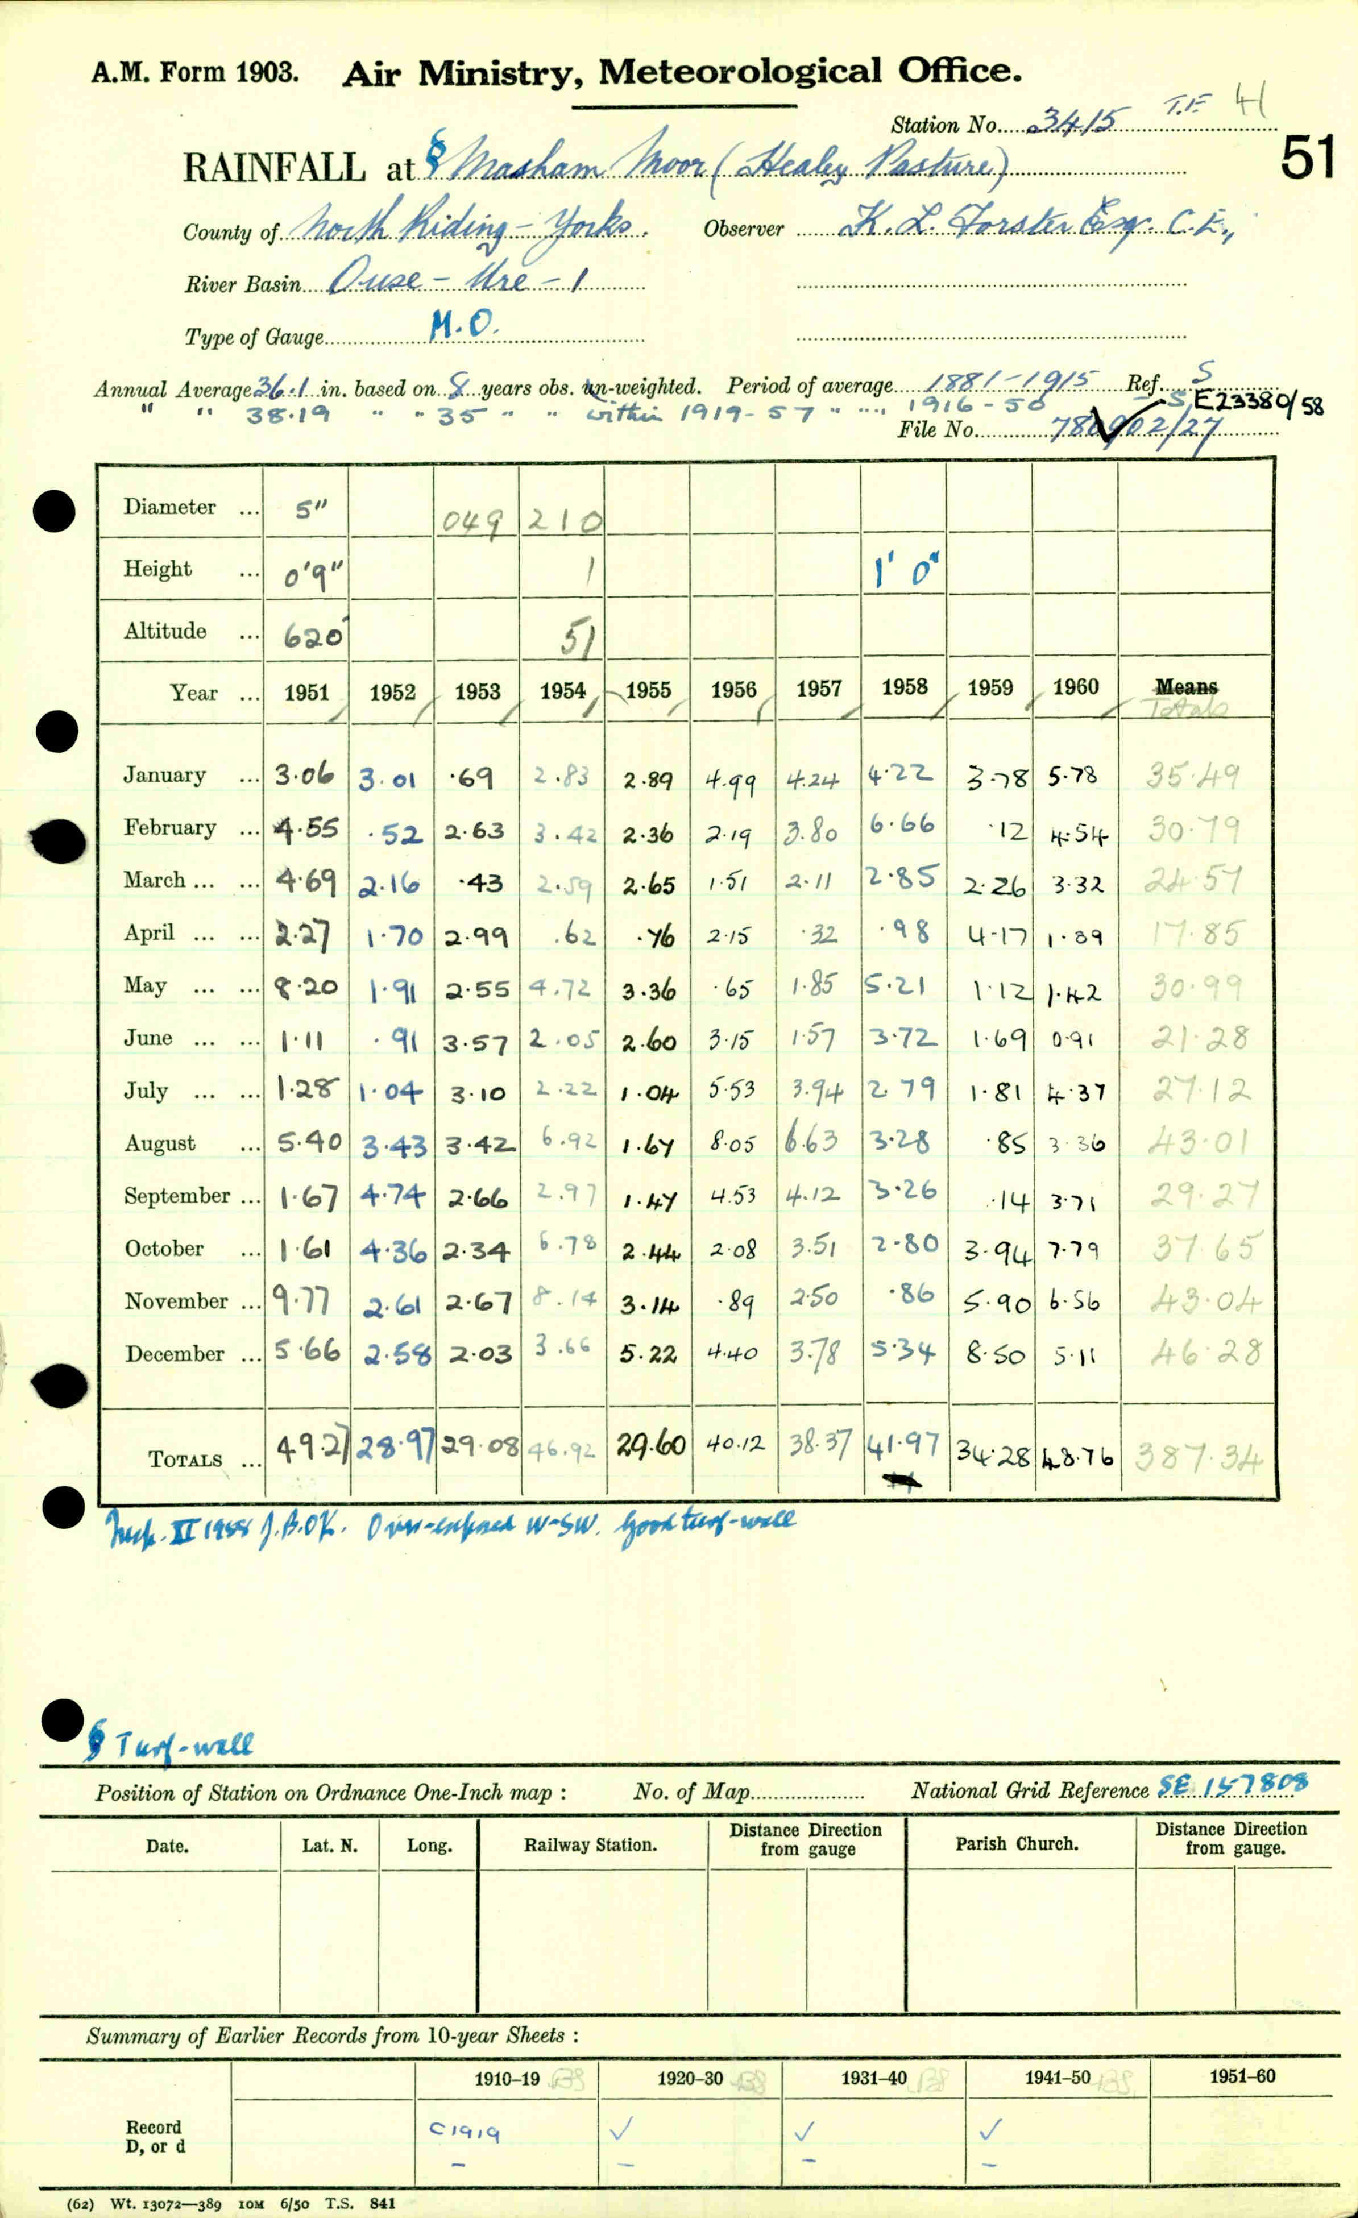 A.M. Form 1903. Air Ministry, Meteorological Office.
Station No. 3415 T.F. 41
51
RAINFALL at § Masham Moor (Healey Pasture)
County of North Riding - Yorks. Observer K. L. Forster Esq. C.E.,
River Basin Ouse - Ure - 1
Type of Gauge M.O.
Annual Average 36.1 in. based on 8 years obs. un-weighted. Period of average 1881-1915 Ref. S
" " 38.19 " " 35 " " within 1919-57 " " " 1916-50 S, E23380/58
File No. 780902/27
Diameter ... 5" 049 210
Height ... 0'9" 1 1' 0"
Altitude ... 620' 51
Year ... 1951 1952 1953 1954 1955 1956 1957 1958 1959 1960 Means
Totals
January ... 3.06 3.01 .69 2.83 2.89 4.99 4.24 4.22 3.78 5.78 35.49
February ... 4.55 .52 2.63 3.42 2.36 2.19 3.80 6.66 .12 4.54 30.79
March ... ... 4.69 2.16 .43 2.59 2.65 1.51 2.11 2.85 2.26 3.32 24.57
April ... ... 2.27 1.70 2.99 .62 .76 2.15 .32 .98 4.17 1.89 17.85
May ... ... 8.20 1.91 2.55 4.72 3.36 .65 1.85 5.21 1.12 1.42 30.99
June ... ... 1.11 .91 3.57 2.05 2.60 3.15 1.57 3.72 1.69 0.91 21.28
July ... ... 1.28 1.04 3.10 2.22 1.04 5.53 3.94 2.79 1.81 4.37 27.12
August ... 5.40 3.43 3.42 6.92 1.67 8.05 6.63 3.28 .85 3.36 43.01
September ... 1.67 4.74 2.66 2.97 1.47 4.53 4.12 3.26 .14 3.71 29.27
October ... 1.61 4.36 2.34 6.78 2.44 2.08 3.51 2.80 3.94 7.79 37.65
November ... 9.77 2.61 2.67 8.14 3.14 .89 2.50 .86 5.90 6.56 43.04
December ... 5.66 2.58 2.03 3.66 5.22 4.40 3.78 5.34 8.50 5.11 46.28
TOTALS ... 49.27 28.97 29.08 46.92 29.60 40.12 38.37 41.97 34.28 48.76 387.34
Insp. 1958 J.B. OK. Over-exposed W-SW. Good turf-wall
§ Turf-wall
Position of Station on Ordnance One-Inch map : No. of Map National Grid Reference SE 157808
Date. Lat. N. Long. Railway Station. Distance Direction from gauge Parish Church. Distance Direction from gauge.
Summary of Earlier Records from 10-year Sheets :
1910-19 BS 1920-30 BS 1931-40 BS 1941-50 BS 1951-60
Record C1919 ✓ ✓ ✓
D, or d - - - -
(62) Wt. 13072—389 10M 6/50 T.S. 841